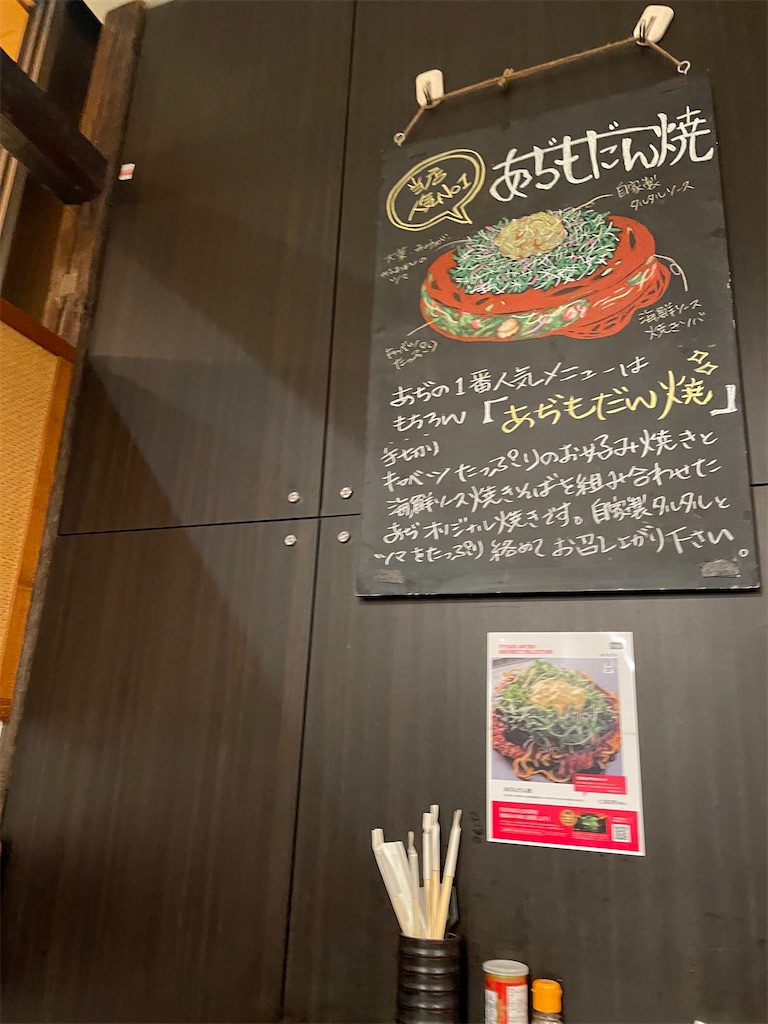 あぢもだん焼
当店
人気No1
自家製
タルタルソース
大葉
ツマ
キャベツ
たっぷり
海鮮ソース
焼きソバ
あぢの1番人気メニューは
もちろん「あぢもだん焼」
手切り
キャベツたっぷりのお好み焼きと
海鮮ソース焼きそばを組み合わせた
あぢオリジナル焼きです。自家製タルタルと
ツマをたっぷり絡めてお召し上がり下さい。